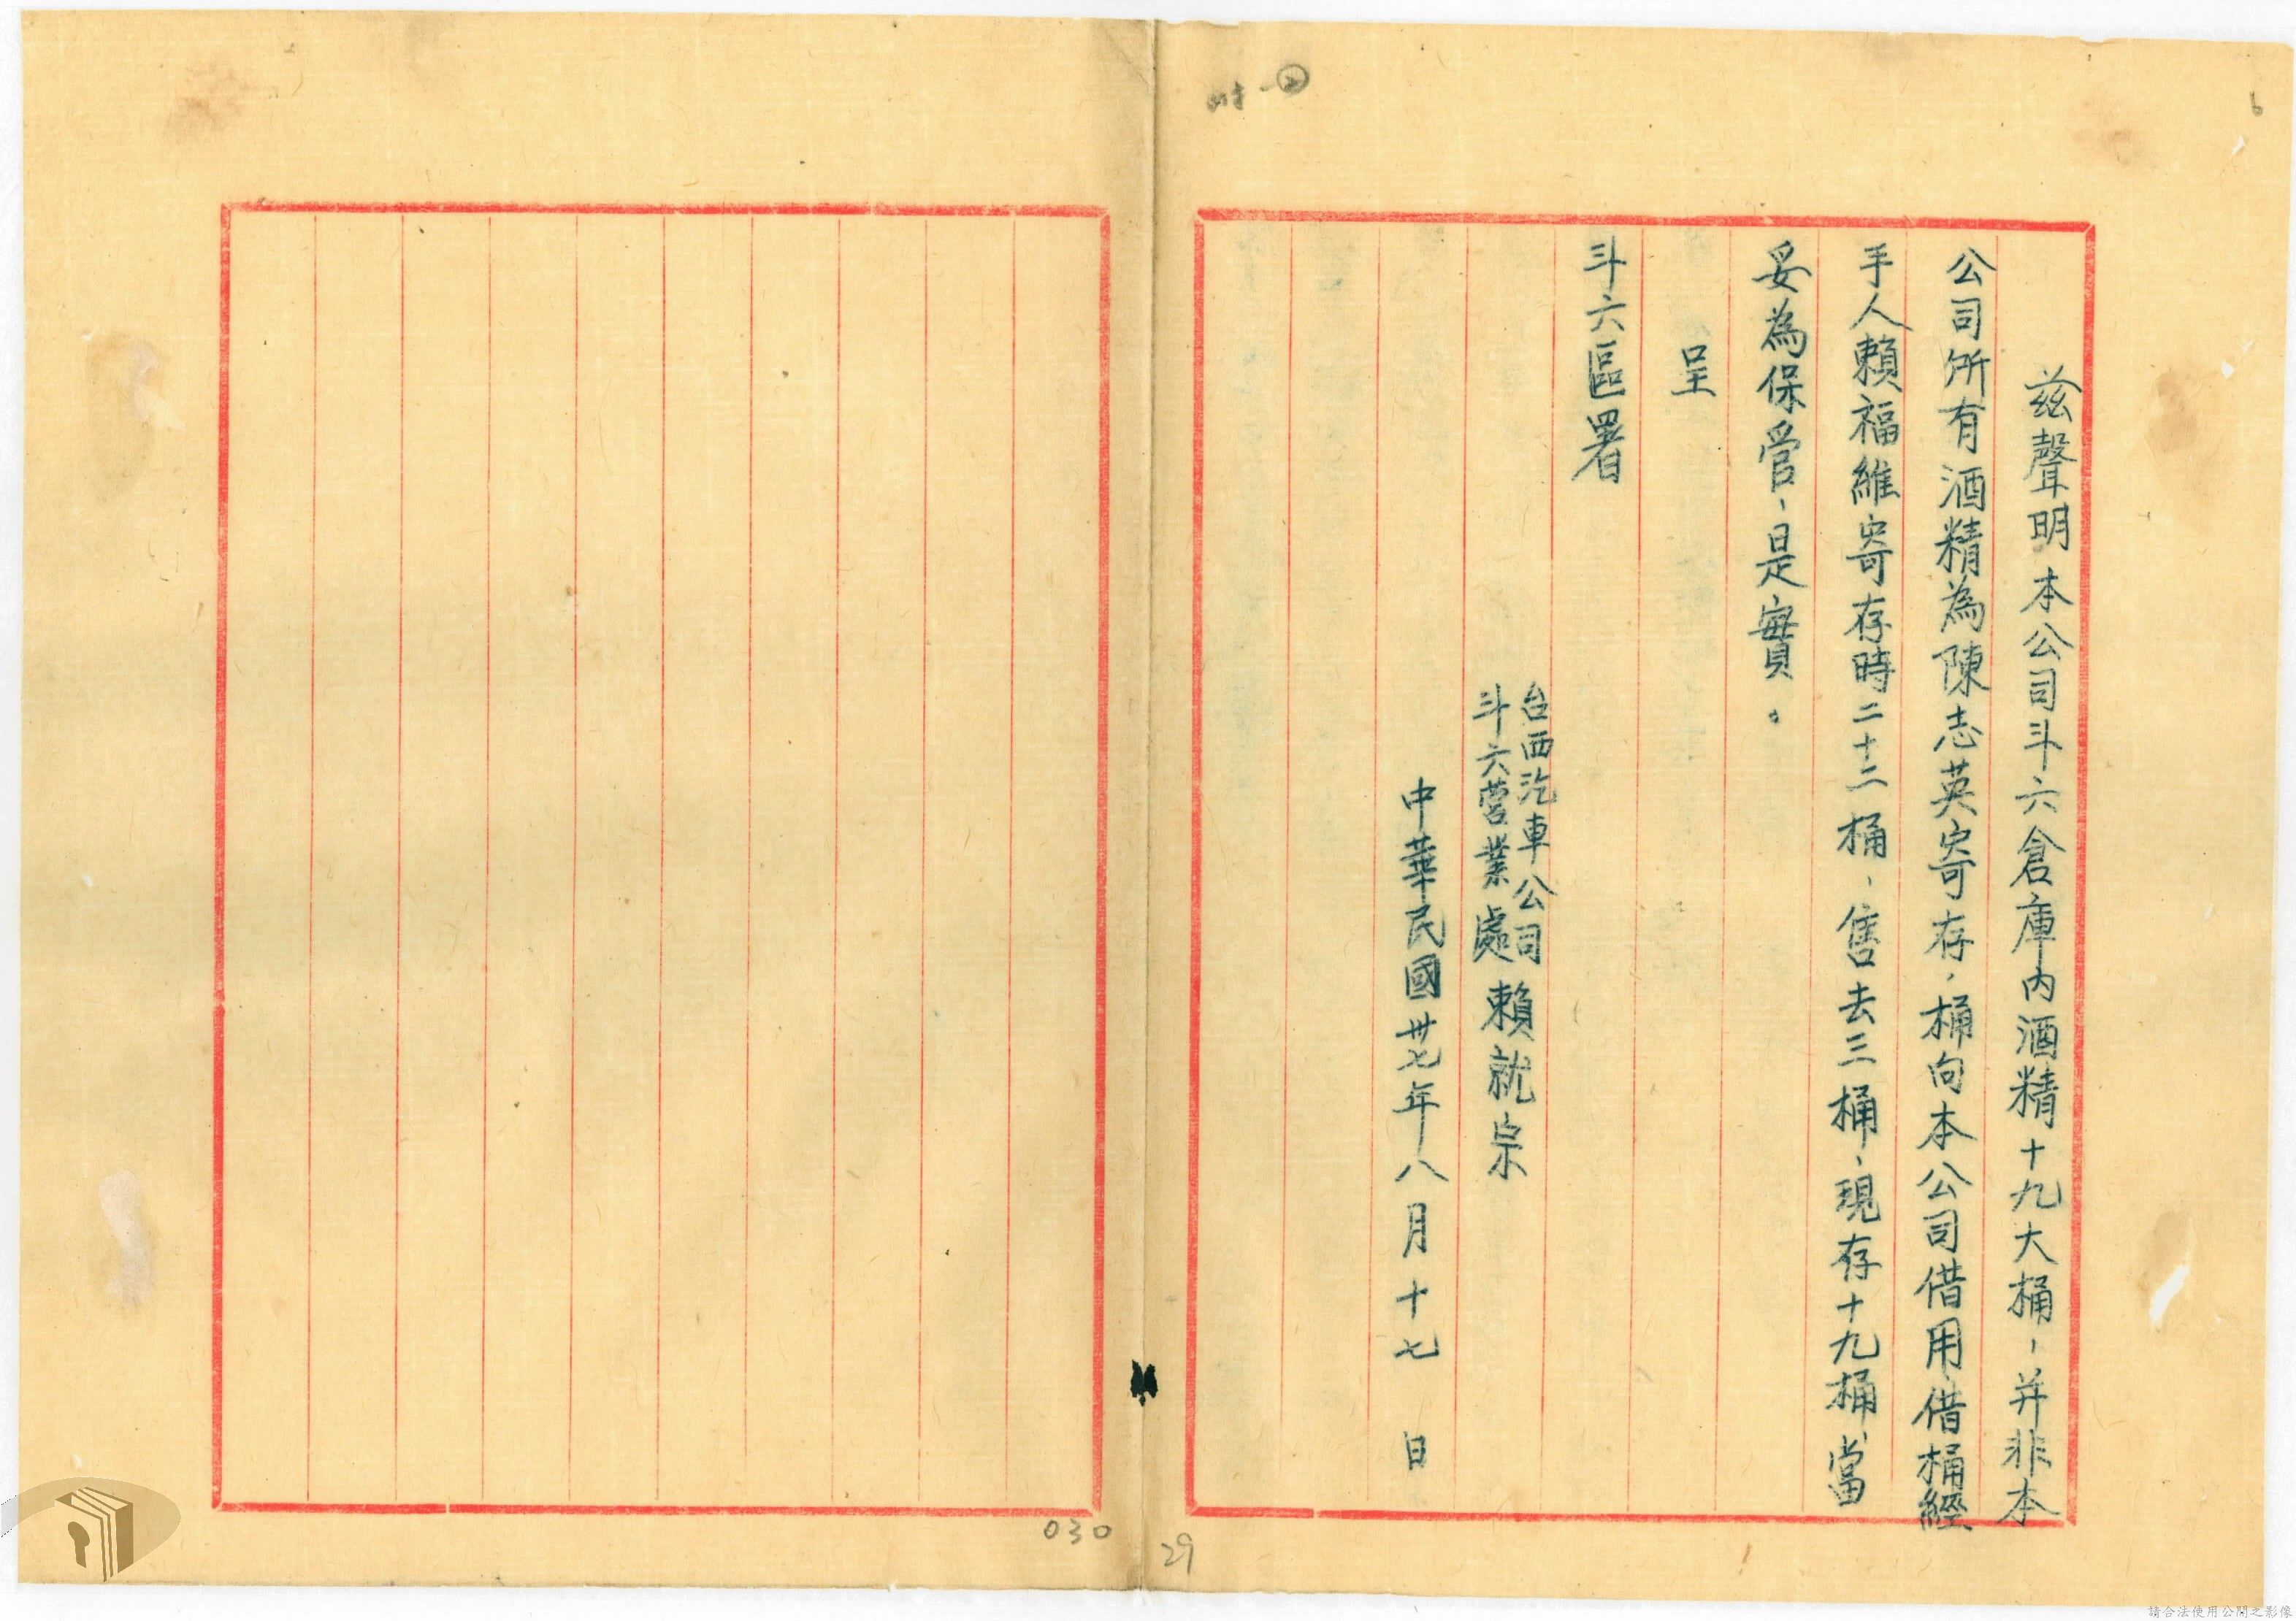 附-②
6
茲聲明本公司斗六倉庫內酒精十九大桶、并非本
公司所有酒精為陳志英寄存、桶向本公司借用、借桶經
手人賴福維寄存時二十二桶、售去三桶、現存十九桶、當
妥為保管、是實。
呈
斗六區署
台西汽車公司
斗六營業處 賴就宗
中華民國卅七年八月十七 日
030
29
請合法使用公開之影像